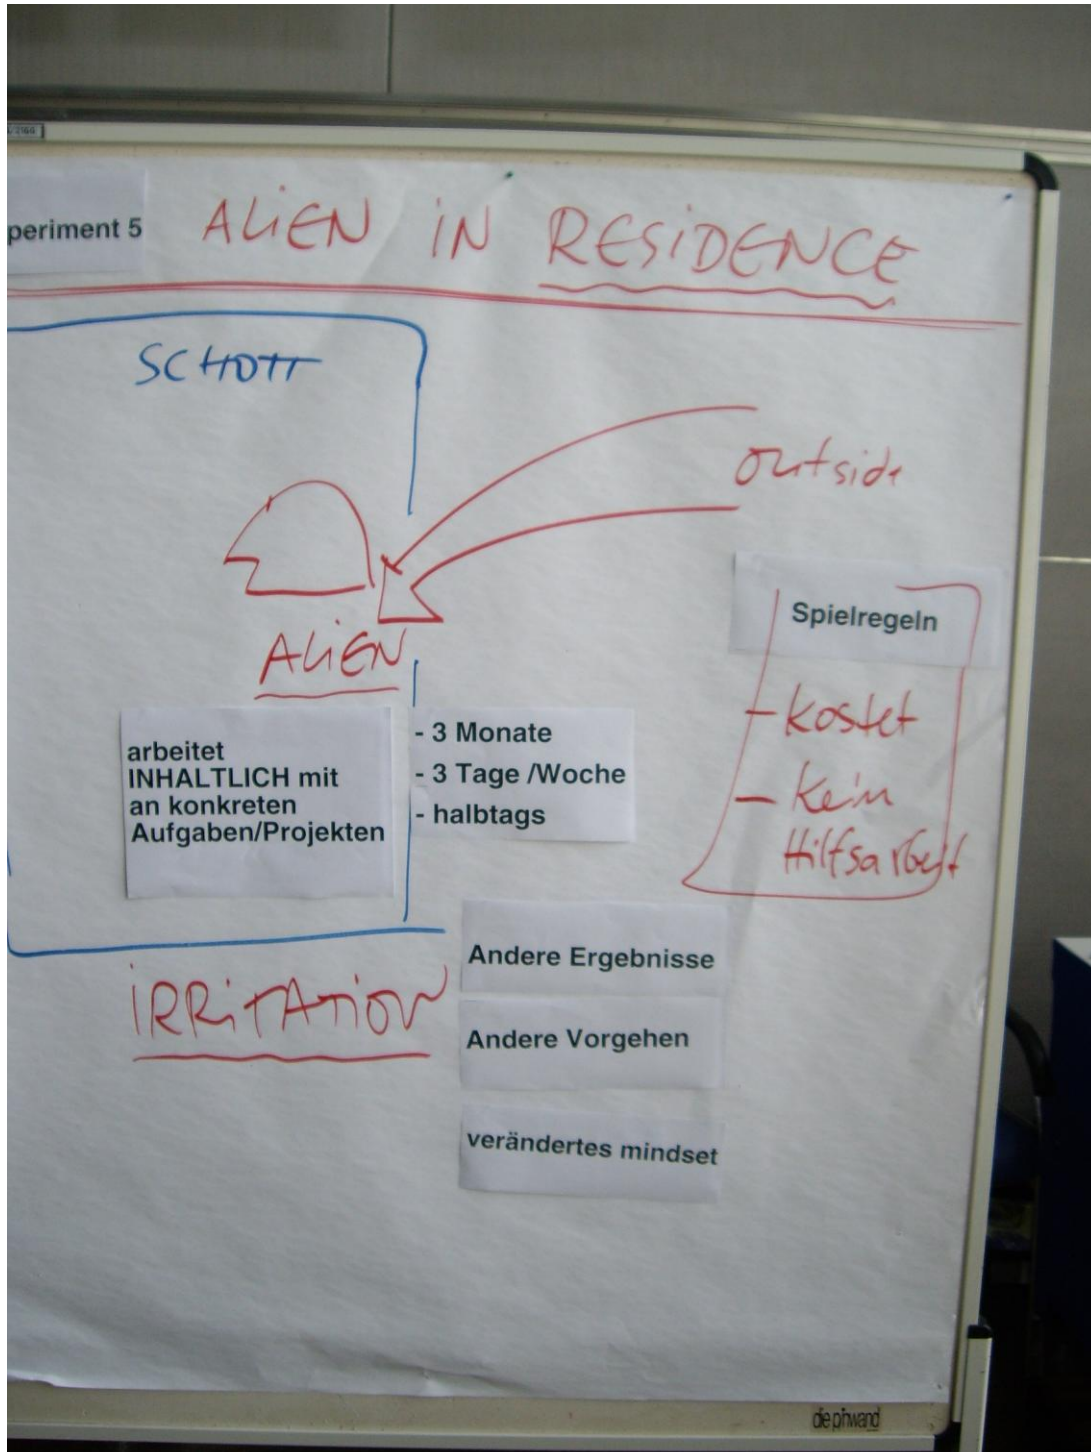 periment 5
ALIEN IN RESIDENCE
SCHOTT
outside
ALIEN
Spielregeln
- kostet
- kein
Hilfsarbeit
arbeitet
INHALTLICH mit
an konkreten
Aufgaben/Projekten
- 3 Monate
- 3 Tage /Woche
- halbtags
IRRITATION
Andere Ergebnisse
Andere Vorgehen
verändertes mindset
die pinwand